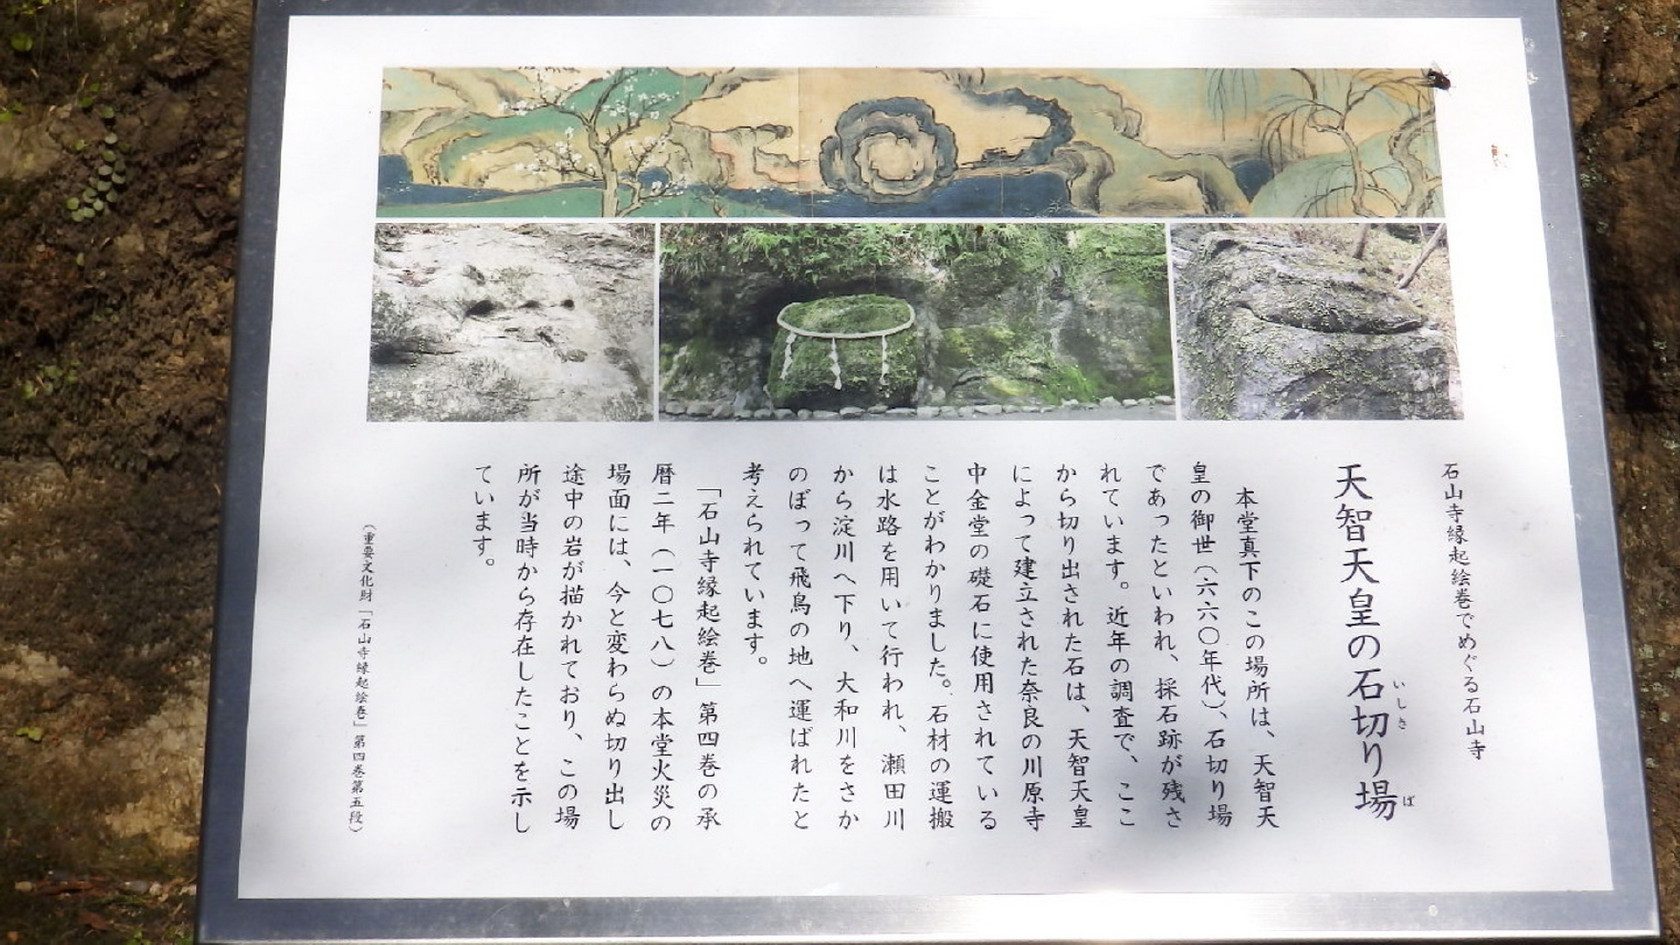 石山寺縁起絵巻でめぐる石山寺
天智天皇の石切り場
いしき
ば
本堂真下のこの場所は、天智天
皇の御世（六六〇年代）、石切り場
であったといわれ、採石跡が残さ
れています。近年の調査で、ここ
から切り出された石は、天智天皇
によって建立された奈良の川原寺
中金堂の礎石に使用されている
ことがわかりました。石材の運搬
は水路を用いて行われ、瀬田川
から淀川へ下り、大和川をさか
のぼって飛鳥の地へ運ばれたと
考えられています。
「石山寺縁起絵巻」第四巻の承
暦二年（一〇七八）の本堂火災の
場面には、今と変わらぬ切り出し
途中の岩が描かれており、この場
所が当時から存在したことを示し
ています。
（重要文化財「石山寺縁起絵巻」第四巻第五段）